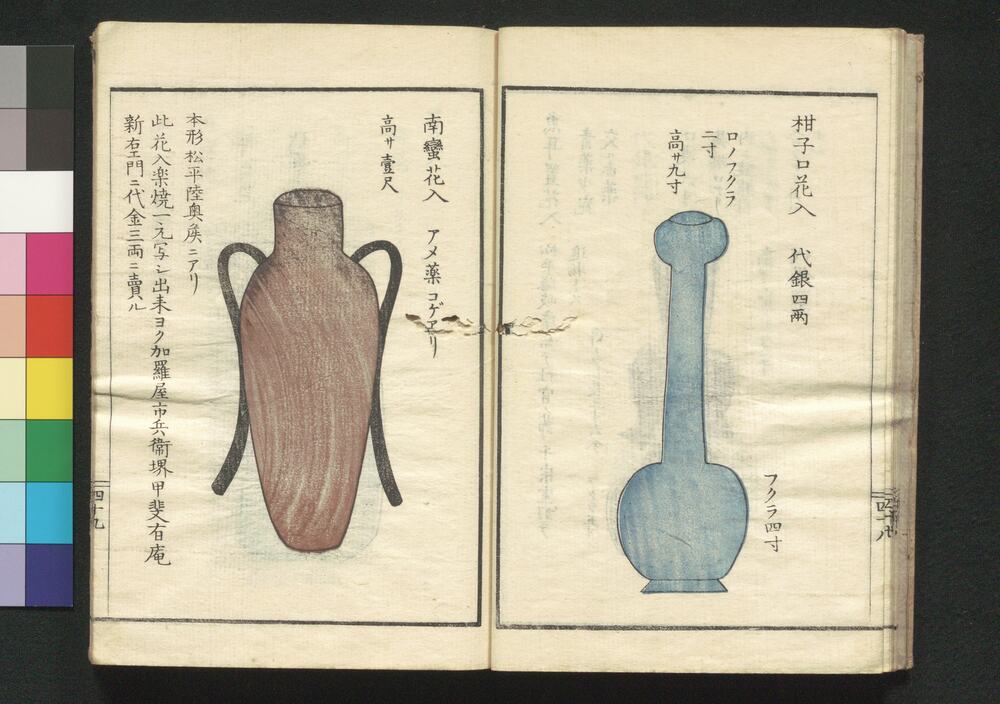 柑子口花入　代銀四兩
口ノフクラ
二寸
高サ九寸
フクラ四寸
四十八
南蠻花入　アメ薬コゲヱリ
高サ壹尺
本形松平陸奥矦ニアリ
此花入楽焼一元写シ出来ヨク加羅屋市兵衞堺甲斐有庵
新右エ門ニ代金三両ニ賣ル
四十九